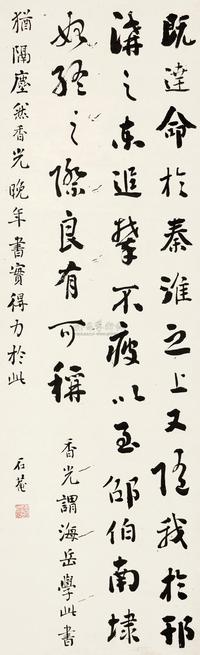 既達命於秦淮之上又隨我於邗
溝之東追攀不疲以至邵伯南埭
始終之際良有可稱
香光謂海岳學此書
猶隔塵然香光晚年書實得力於此
石菴